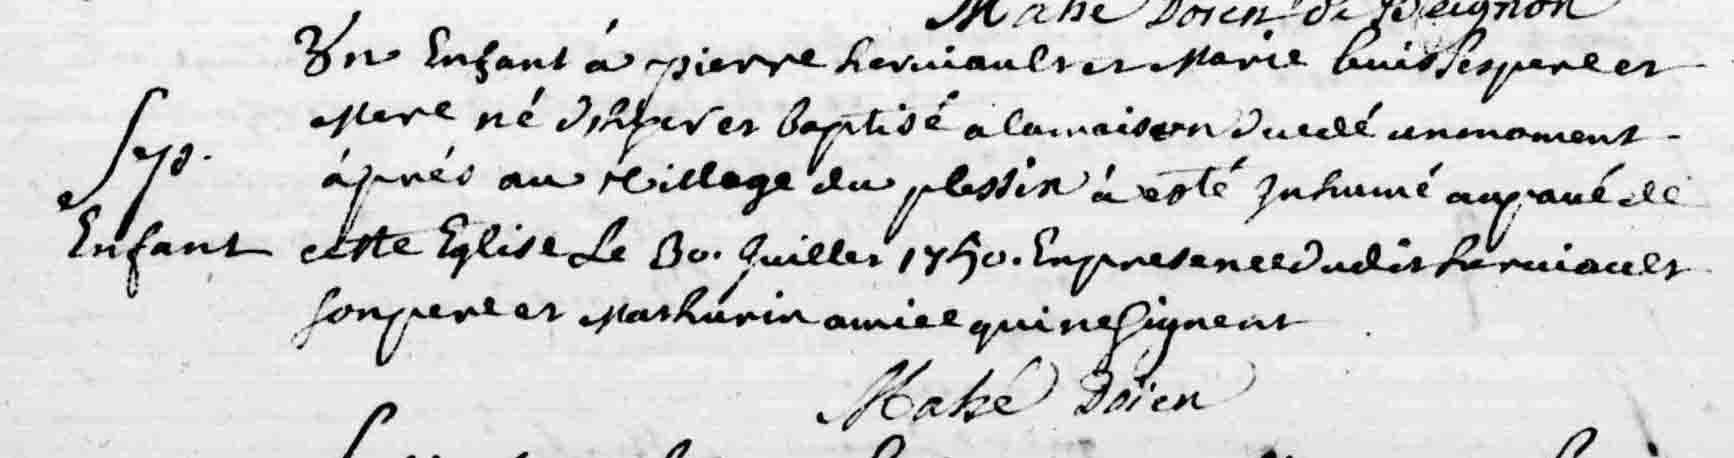 Mahé Doien de Beignon
Un Enfant á pierre herviault et Marie buis ses pere et
Mere né d'hyer et baptisé a la maison decedé un moment
áprés au village du plessix á esté Inhumé au pavé de
cette Eglise Le 30. Juillet 1750. En presence dudit herviault
son pere et Mathurin amice qui ne signent
Sep.
Enfant
Mahé Doien